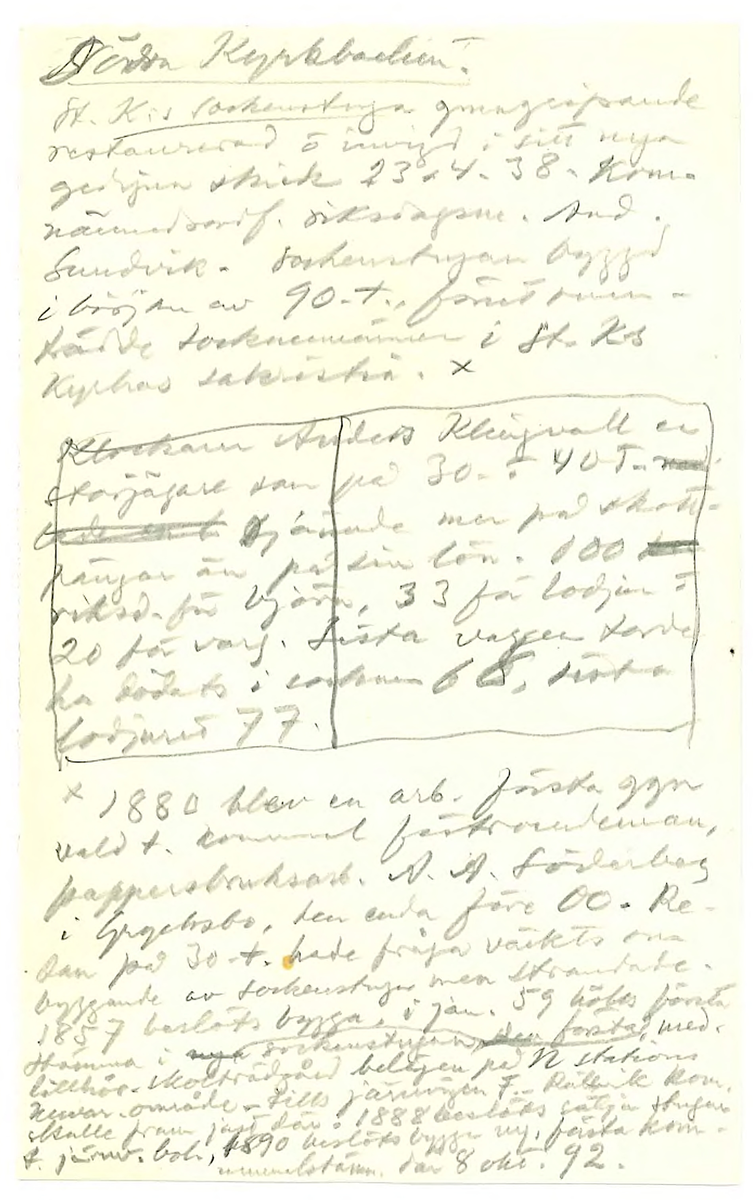 Norra Kyrkbacken.
St. K:s Sockenstuga genomgripande
restaurerad o invigd i sitt nya
skick 23.4.38. Kom-
riksdagsm. And.
Sundvik. Sockenstugan byggd
i början av 90-t., förut samman-
trädde sockenmännen i St. Ks
Kyrkas sakristia. x
Klockaren Anders Klingvall en
storjägare som på 30- o 40 t.
tjänade mer på skott-
pängar än på sin lön. 100
riksd. för björn, 33 för lodjur o
20 för varg. Sista vargen torde
ha dödats i socknen 65, sista
lodjuret 77.
x 1880 blev en arb. första ggn
vald t. kommunal förtroendeman,
pappersbruksarb. A. A. Söderberg
i Grycksbo, den enda före 00. Re-
dan på 30-t. hade fråga väckts om
byggande av sockenstuga men strandade.
1857 beslöts bygga, i jan. 59 hölls första
stämma i sockenstugan, den första, med.
tillhör. skolträdgård belägen på N stations
område - Tills järnvägen F.- Rättvik kom.
skulle fram just där. 1888 beslöts sälja stugan
t. järnv. bol., 1890 beslöts bygga ny, första kom-
munalstämm. där 8 okt. 92.